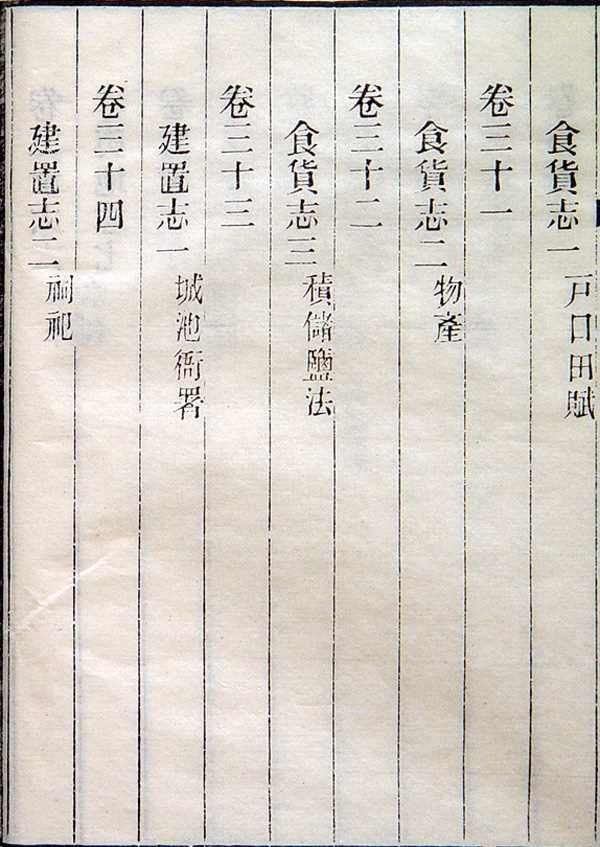 食貨志一 戸口田賦
卷三十一
食貨志二 物產
卷三十二
食貨志三 積儲鹽法
卷三十三
建置志一 城池衙署
卷三十四
建置志二 祠祀